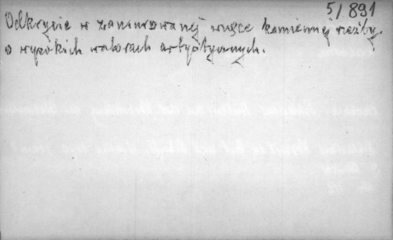 51891
Odkrycie w zamurowanej wnęce kamiennej rzeźby
o wysokich walorach artystycznych.